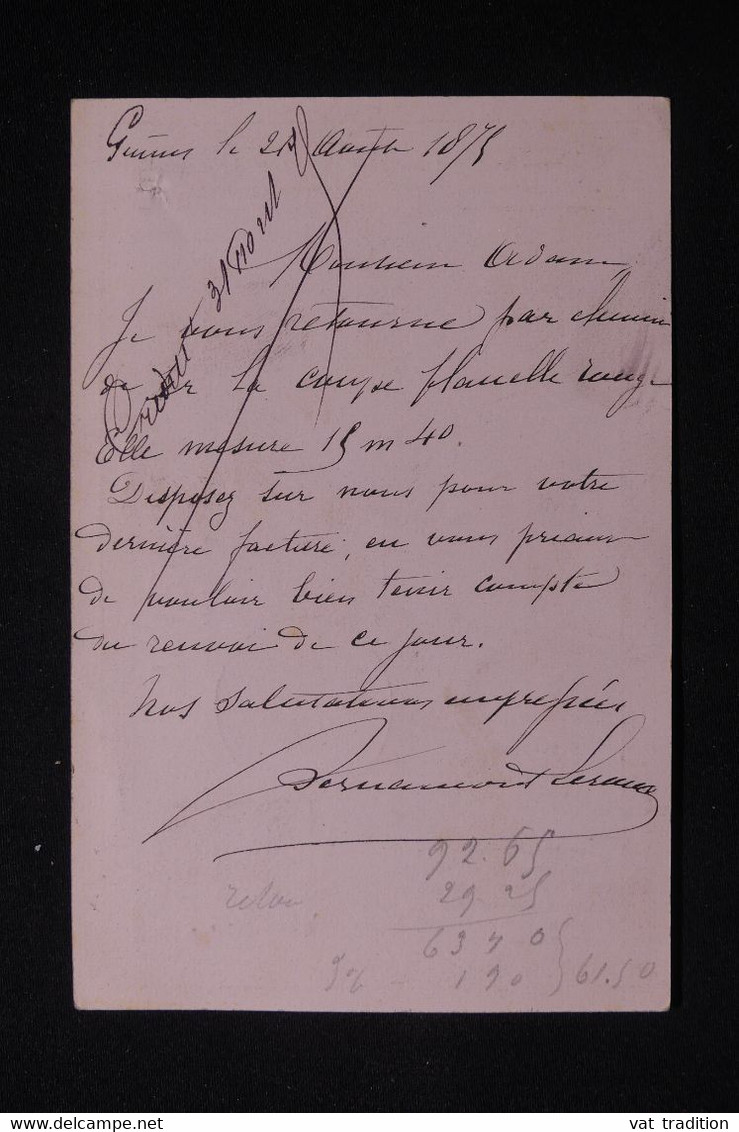 Guines le 29 Août 1875
Crédité 31 Aout
Monsieur Adam,
Je vous retourne par chemin
de fer la coupe flanelle rouge
Elle mesure 15 m 40.
Disposez sur nous pour votre
dernière facture, en vous priant
de vouloir bien tenir compte
du renvoi de ce jour.
Nos salutations empressées
92.65
29 25
63 40
3% 190 } 61.50
www.delcampe.net
vat tradition